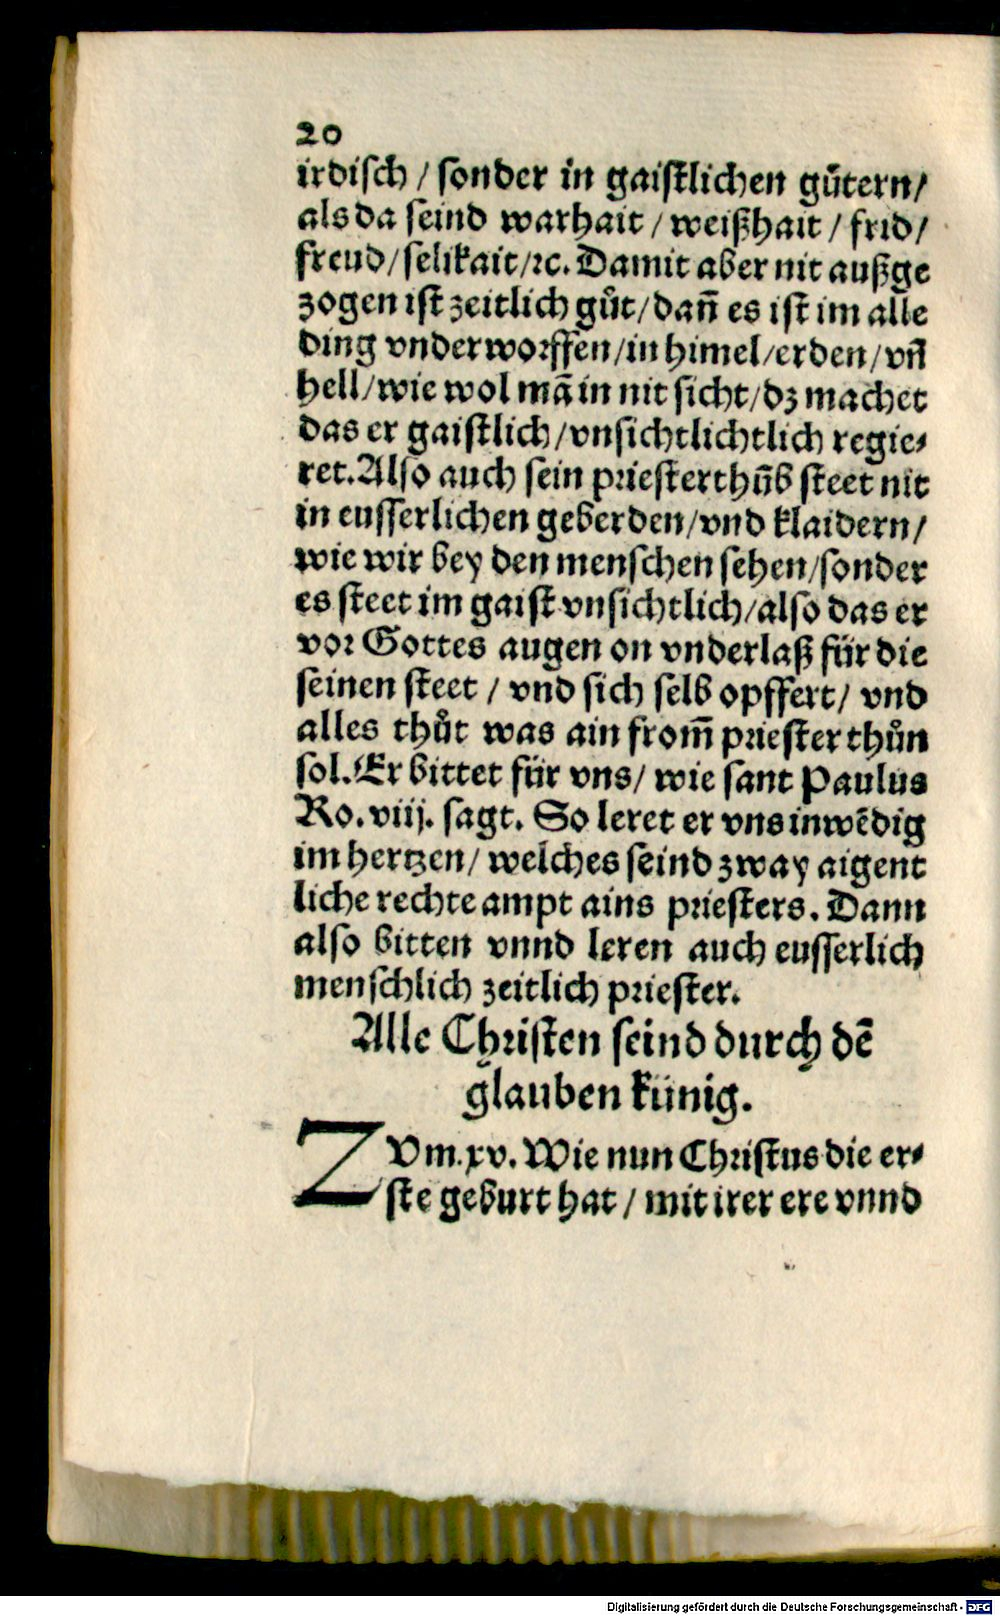 20
irdisch / sonder in gaistlichen gütern /
als da seind warhait / weißhait / frid /
freud / selikait / ꝛc. Damit aber nit außge
zogen ist zeitlich gůt / dañ es ist im alle
ding vnderworffen / in himel / erden / vñ
hell / wie wol mã in nit sicht / dz machet
das er gaistlich / vnsichtlichtlich regie⸗
ret. Also auch sein priesterthũb steet nit
in eusserlichen geberden / vnd klaidern /
wie wir bey den menschen sehen / sonder
es steet im gaist vnsichtlich / also das er
vor Gottes augen on vnderlaß für die
seinen steet / vnd sich selb opffert / vnd
alles thůt was ain from̃ priester thůn
sol. Er bittet für vns / wie sant Paulus
Ro. viij. sagt. So leret er vns inwẽdig
im hertzen / welches seind zway aigent
liche rechte ampt ains priesters. Dann
also bitten vnnd leren auch eusserlich
menschlich zeitlich priester.
Alle Christen seind durch dẽ
glauben künig.
ZVm. xv. Wie nun Christus die er⸗
ste geburt hat / mit irer ere vnnd
Digitalisierung gefördert durch die Deutsche Forschungsgemeinschaft - DFG